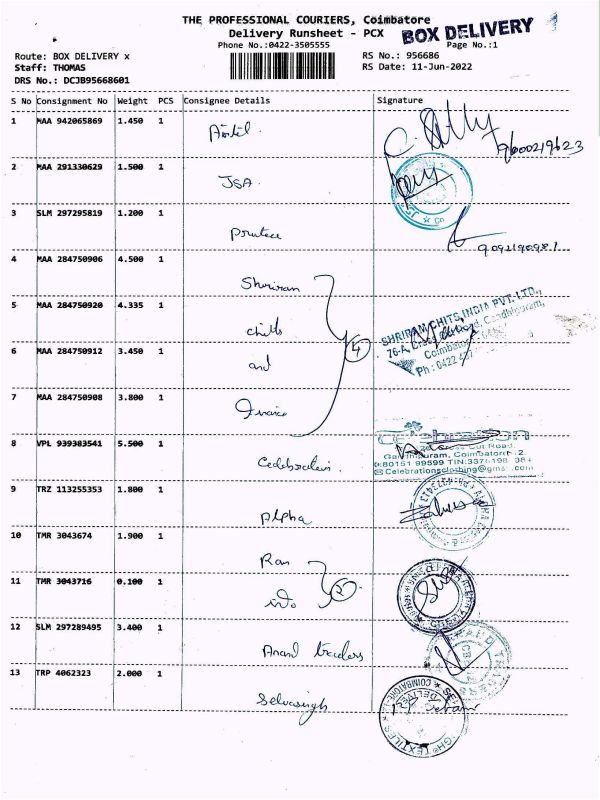 THE PROFESSIONAL COURIERS, Coimbatore
Delivery Runsheet - PCX
BOX DELIVERY
Phone No.:0422-3505555
Page No.:1
Route: BOX DELIVERY x
RS No.: 956686
Staff: THOMAS
RS Date: 11-Jun-2022
DRS No.: DCJB95668601
S No Consignment No Weight PCS Consignee Details Signature
1 MAA 942065869 1.450 1 Airtel
9600219623
2 MAA 291330629 1.500 1 JSA
3 SLM 297295819 1.200 1
9092190981
4 MAA 284750906 4.500 1 Shriram
5 MAA 284750920 4.335 1 chits
SHRIRAM CHITS INDIA PVT. LTD.,
76-A, Gandhipuram,
Coimbatore
Ph : 0422
4
6 MAA 284750912 3.450 1 and
7 MAA 284750908 3.800 1
Celebration
Cut Road,
Gandhipuram, Coimbatore 12
8 VPL 939383541 5.500 1 Celebration
80151 99599 TIN:
Celebrationsclothing@gmail.com
9 TRZ 113255353 1.800 1 Alpha
10 TMR 3043674 1.900 1 Ran
11 TMR 3043716 0.100 1 info
2
12 SLM 297289495 3.400 1 Anand traders
13 TRP 4062323 2.000 1 Selvasingh